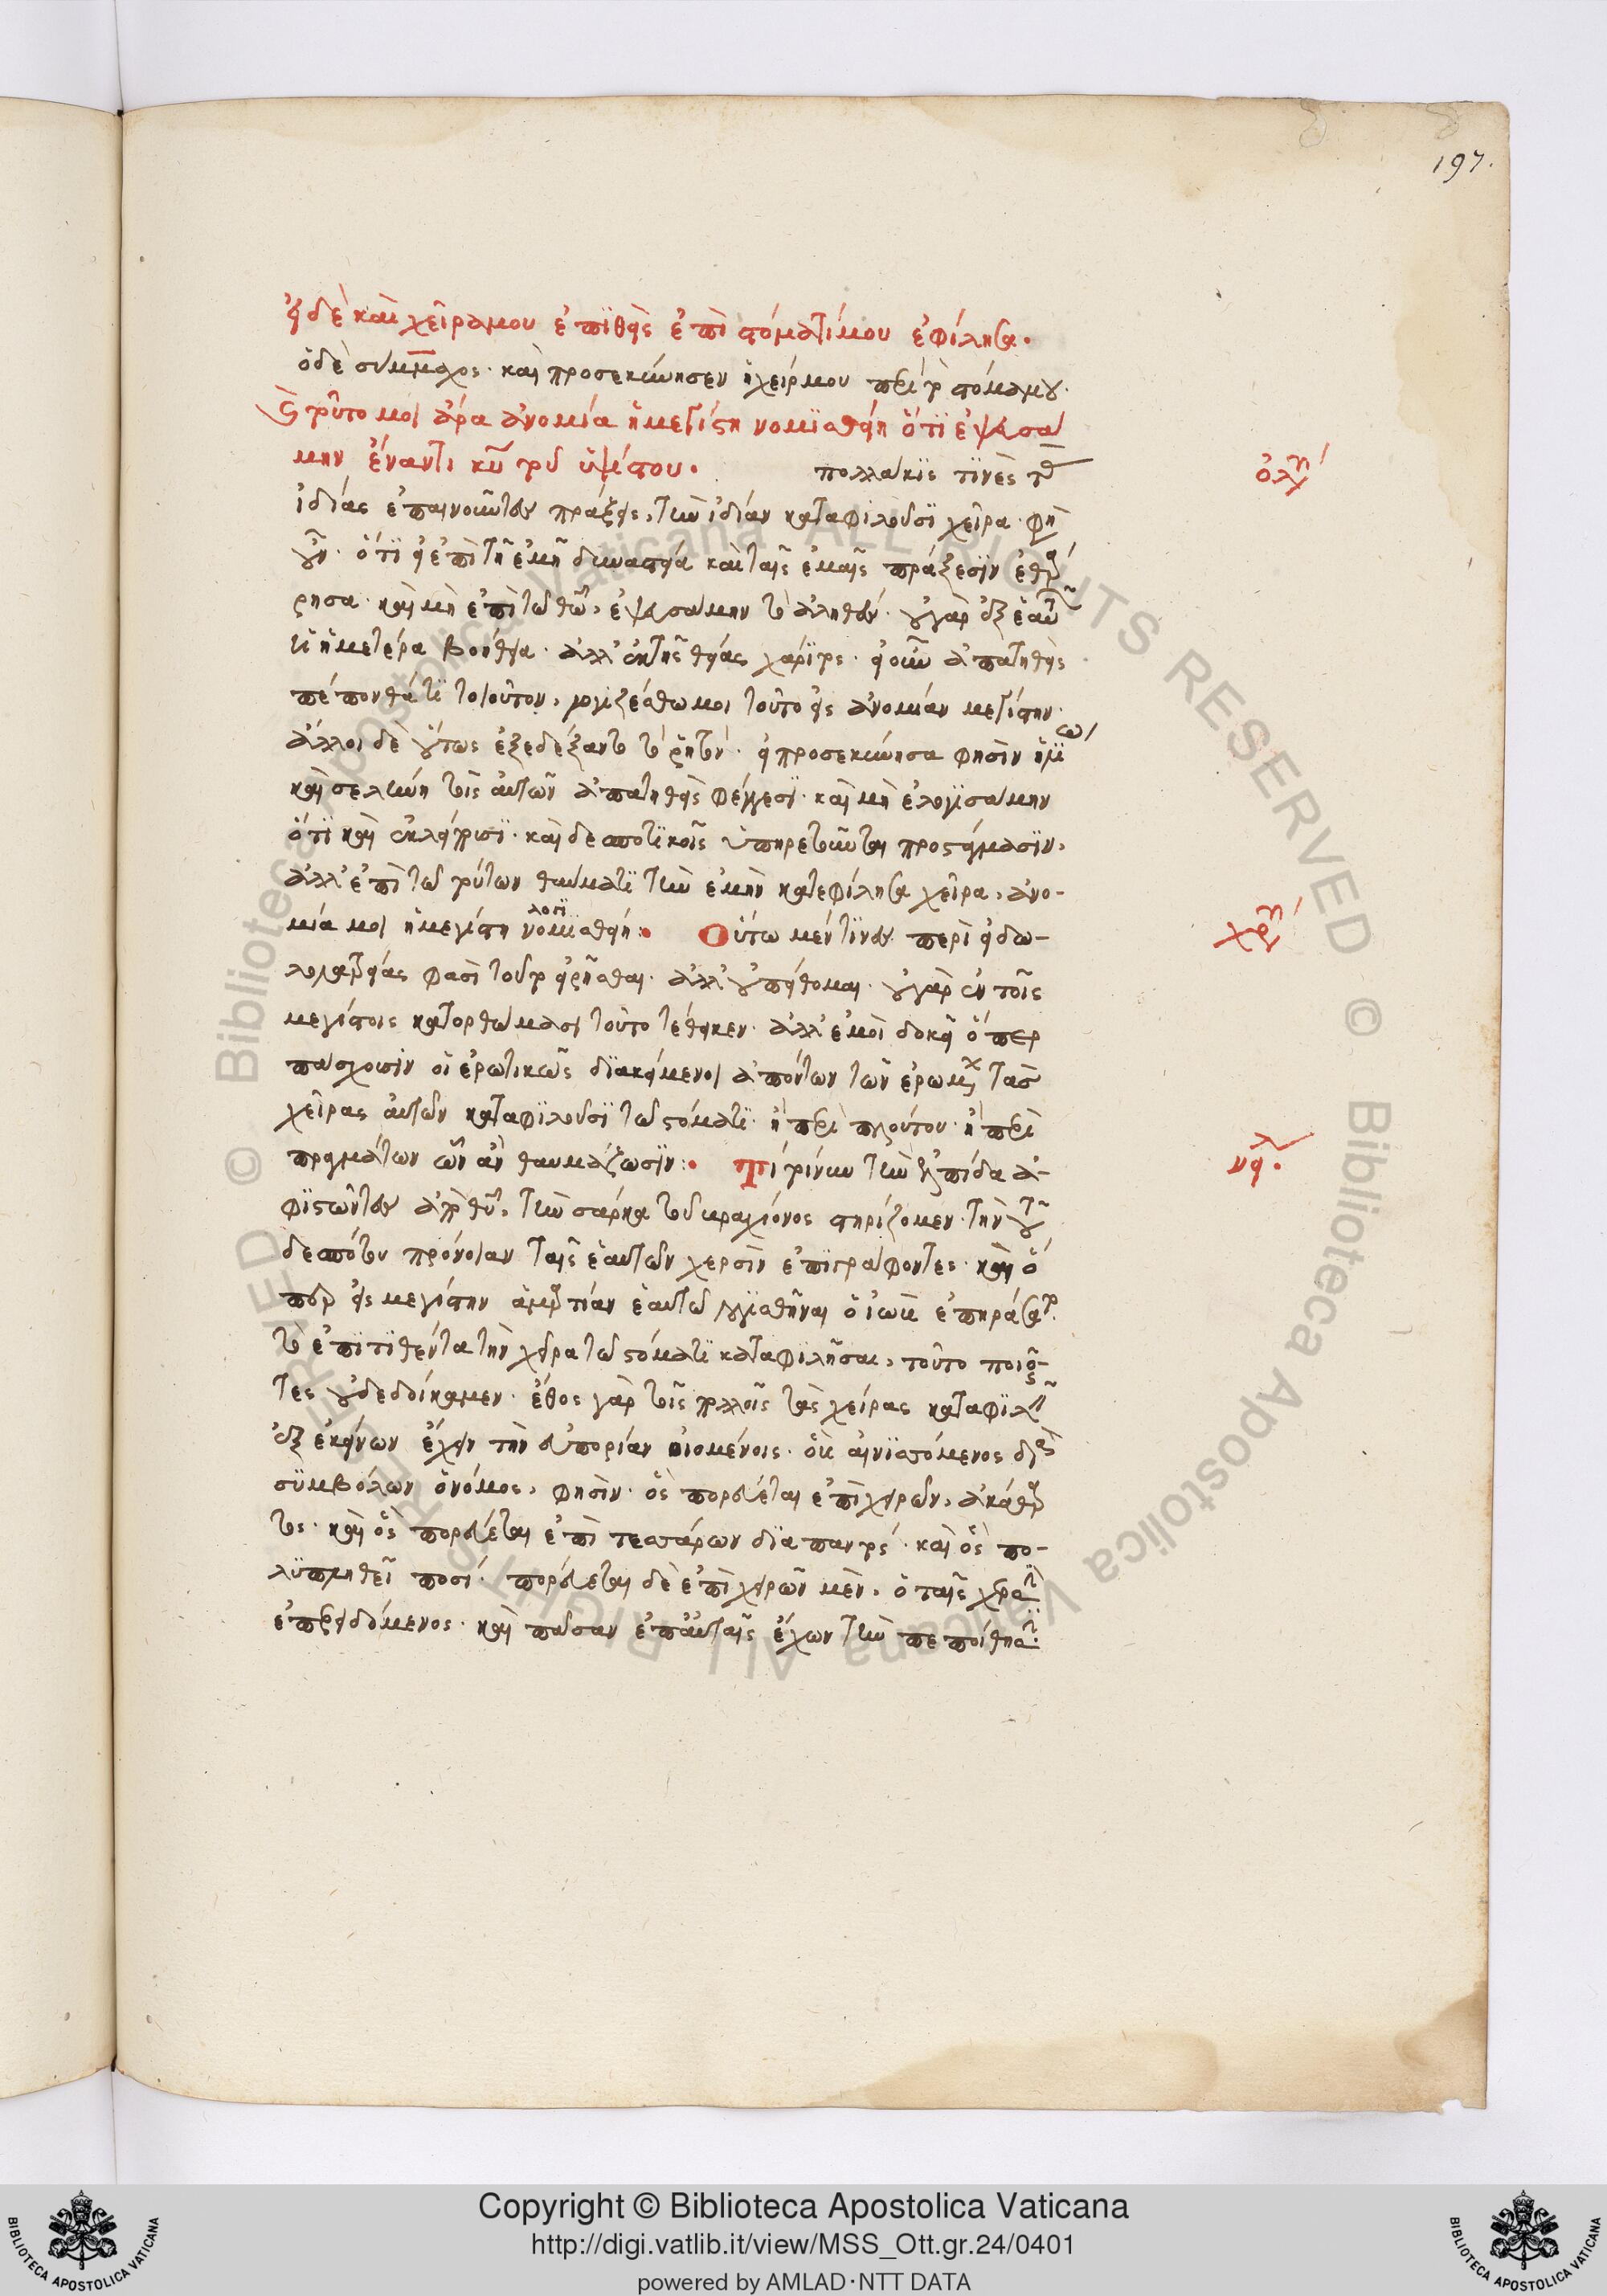 197.
εἰ δὲ καὶ χεῖρα μου ἐπιθεὶς ἐπὶ στόματί μου ἐφίλησα.
ὁ δὲ σύμμαχος· καὶ προσεκύνησεν ἡ χείρ μου περὶ τὸ στόμα μου.
καὶ τοῦτό μοι ἄρα ἀνομία ἡ μεγίστη νομισθείη ὅτι ἐψευσά
μην ἔναντι κυ τοῦ ὑψίστου. πολλάκις τινὲς τὰς
ἰδίας ἐπαινοῦντες πράξεις, τὴν ἰδίαν καταφιλοῦσι χεῖρα· φη
ὅτι εἰ ἐπὶ τῇ ἐμῇ δυναστεία καὶ ταῖς ἐμαῖς πράξεσιν ἐθάρ
ρησα· καὶ μὴ ἐπὶ τῷ θῶ, ἐψευσάμην τὸ ἀληθές· οὐ γὰρ ἐξ ἑαυτῶν
ἡ ἡμετέρα βοήθεια· ἀλλ' ἐκ τῆς θείας χάριτος· εἰ οὖν ἀπατηθεὶς
πέπονθά τι τοιοῦτον, λογιζέσθω μοι τοῦτο εἰς ἀνομίαν μεγίστην·
ἄλλοι δὲ οὕτως ἐξεδέξαντο τὸ ῥητόν· εἰ προσεκύνησα φησὶν ἡλίω
καὶ σελήνη τοῖς αὐτῶν ἀπατηθεὶς φέγγεσι· καὶ μὴ ἐλογισάμην
ὅτι καὶ ἐκλείπουσι· καὶ δεσποτικοῖς ὑπηρετοῦνται προστάγμασιν,
ἀλλ' ἐπὶ τῷ τούτων θαύματι τὴν ἐμὴν κατεφίλησα χεῖρα, ἀνο-
μία μοι ἡ μεγίστη νομισθείη· Οὕτω μέν τινες περὶ εἰδω-
λολατρείας φασὶ τοῦτο εἰρῆσθαι· ἀλλ' οὐ πείθομαι· οὐ γὰρ ἐν τοῖς
μεγίστοις κατορθώμασι τοῦτο τέθεικεν· ἀλλ' ἐμοὶ δοκεῖ ὅπερ
πάσχουσιν οἱ ἐρωτικῶς διακείμενοι ἀπόντων τῶν ἐρωμένων τὰς
χεῖρας αὐτῶν καταφιλοῦσι τῷ στόματι· ἢ περὶ πλούτου· ἢ περὶ
πραγμάτων ὧν ἂν θαυμάζωσιν· Τί τοίνυν τὴν ἐλπίδα ἀ-
φιστῶντες ἀπὸ θυ, τὴν σάρκα τοῦ βραχίονος στηρίζομεν· τὴν τοῦ
δεσπότου πρόνοιαν ταῖς ἑαυτῶν χερσὶν ἐπιγράφοντες· καὶ ὅ
περ εἰς μεγίστην ἁμαρτίαν ἑαυτῷ λογισθῆναι ὁ ἰὼβ ἐπηράσατο·
τὸ ἐπιτιθέντα τὴν χεῖρα τῷ στόματι καταφιλῆσαι, τοῦτο ποιοῦν-
τες οὐ δεδοίκαμεν· ἔθος γὰρ τοῖς πολλοῖς τὰς χεῖρας καταφιλεῖν
ἐξ ἐκείνων ἔχειν τὴν εὐπορίαν οἰομένοις· οὓς αἰνιττόμενος διὰ
συμβόλων ὁ νόμος, φησὶν· ὃς πορεύεται ἐπὶ χειρῶν, ἀκάθαρ
τος· καὶ ὃς πορεύεται ἐπὶ τεσσάρων διὰ παντός· καὶ ὃς πο-
λυπληθεῖ ποσί· πορεύεται δὲ ἐπὶ χειρῶν μὲν, ὁ ταῖς χερσὶν
ἐπερειδόμενος· καὶ πᾶσαν ἐπ' αὐταῖς ἔχων τὴν πεποίθησιν·
Copyright © Biblioteca Apostolica Vaticana
http://digi.vatlib.it/view/MSS_Ott.gr.24/0401
powered by AMLAD·NTT DATA
BIBLIOTECA APOSTOLICA VATICANA
BIBLIOTECA APOSTOLICA VATICANA